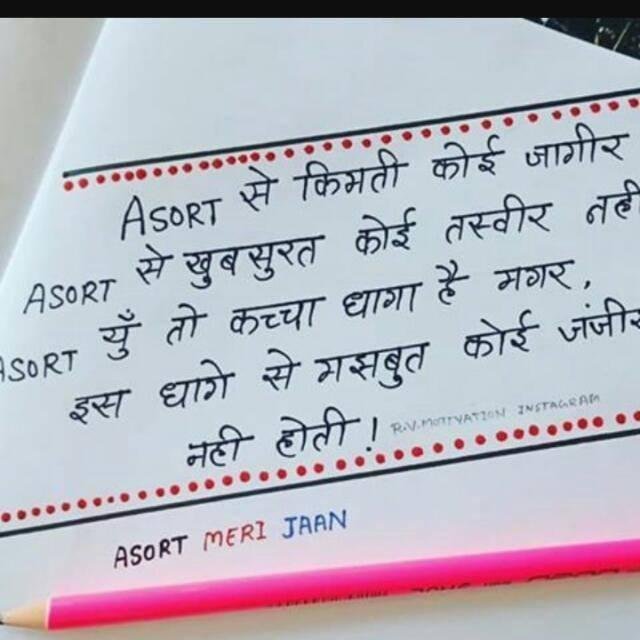 ASORT से किमती कोई जागीर
ASORT से खुबसुरत कोई तस्वीर नही
ASORT युँ तो कच्चा धागा है मगर,
इस धागे से मझबुत कोई जंजीर
नही होती !
R.V.MOTIVATION INSTAGRAM
ASORT MERI JAAN